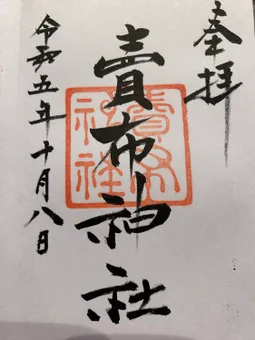 奉拝
賣布神社
令和五年十月八日
賣布
神社